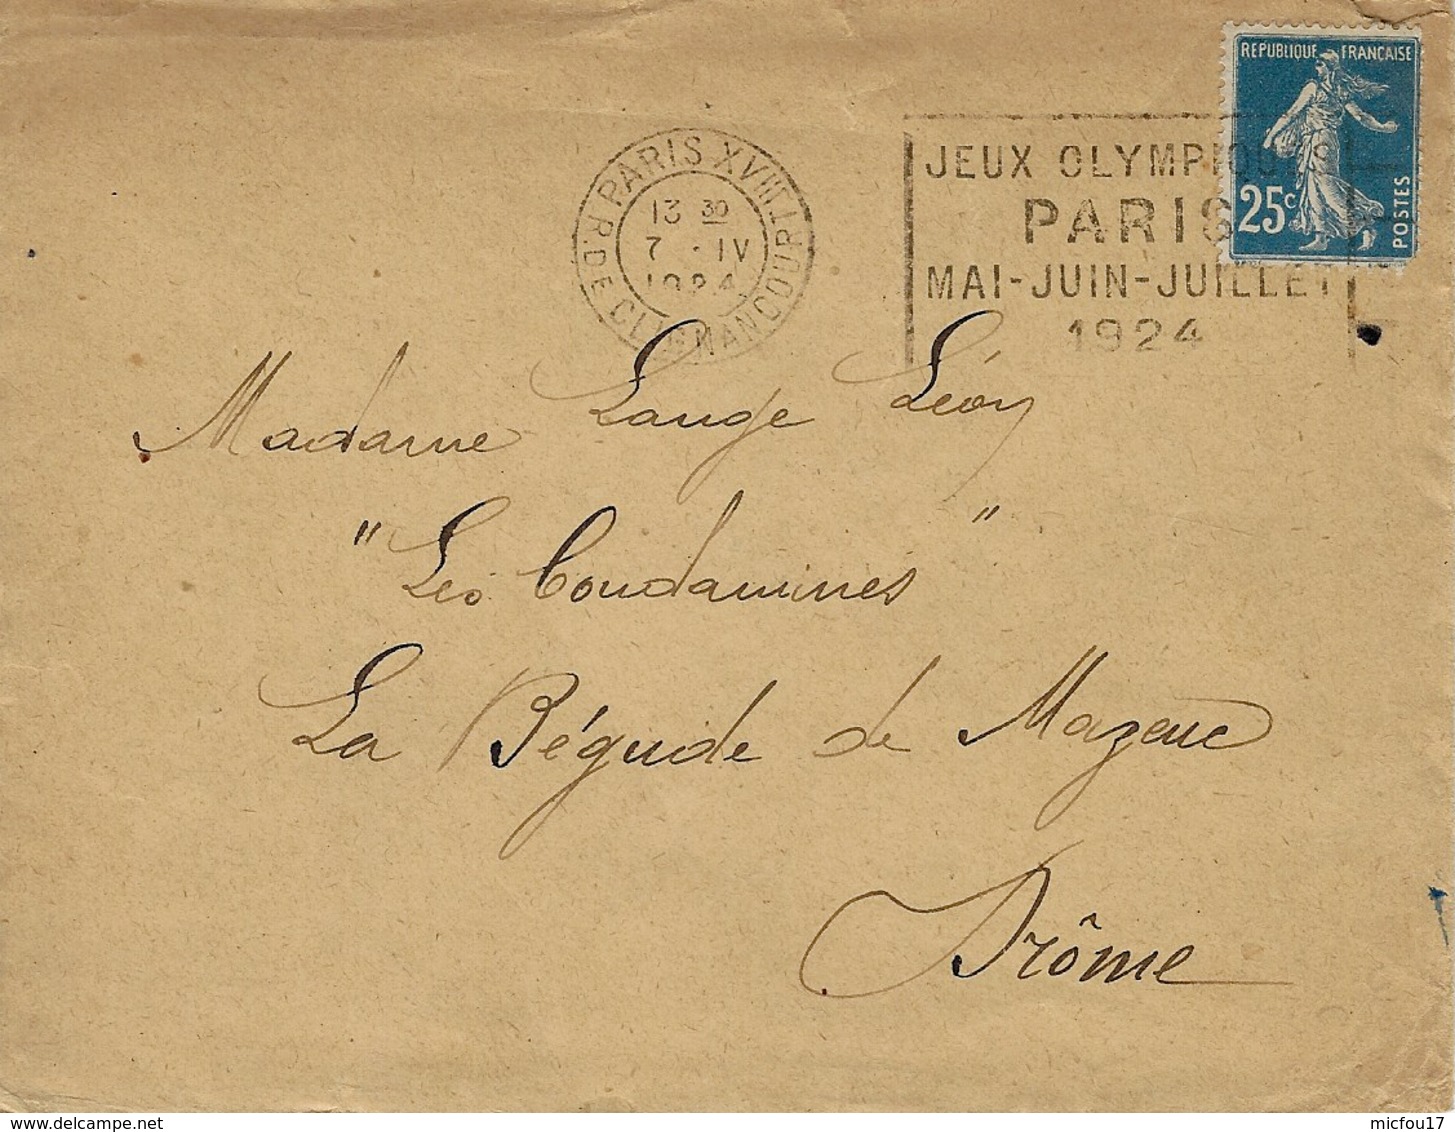 REPUBLIQUE FRANÇAISE
25c
POSTES
PARIS XVIII
R. DE CLIGNANCOURT
13 30
7 - IV
1924
JEUX OLYMPIQUES
PARIS
MAI-JUIN-JUILLET
1924
Madame Lange Léon
"Les Condamines"
La Bégude de Mazenc
Drôme
www.delcampe.net
micfou17